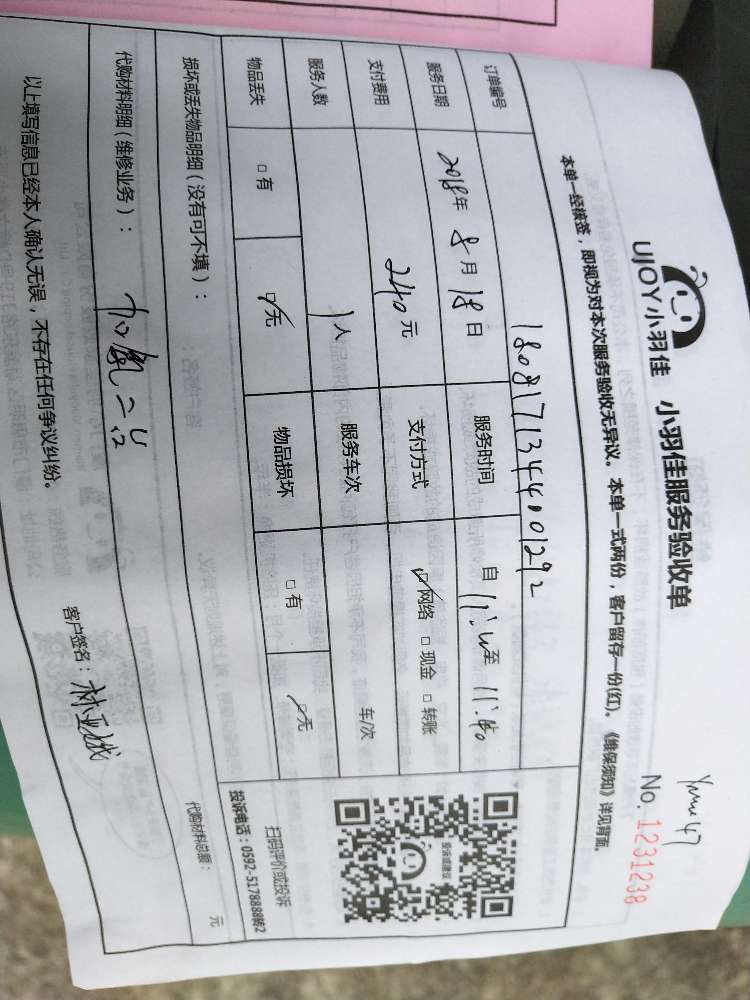 Ymu 47
UJOY小羽佳 小羽佳服务验收单
No. 1231238
本单一经核签，即视为对本次服务验收无异议。本单一式两份，客户留存一份(红)。《维保须知》详见背面。
订单编号 180817134401292
服务日期 2018年 8月 18日 服务时间 自 至 11:40
支付费用 240元 支付方式 ☑网络 □现金 □转账
服务人数 1人 服务车次 车/次
物品丢失 □有 ☑无 物品损坏 □有 ☑无
扫码评价或投诉
投诉电话：0592-5178888转2
损坏或丢失物品明细（没有可不填）：
代购材料明细（维修业务）： 加氟
代购材料总额： 元
以上填写信息已经本人确认无误，不存在任何争议纠纷。
客户签名：林亚城